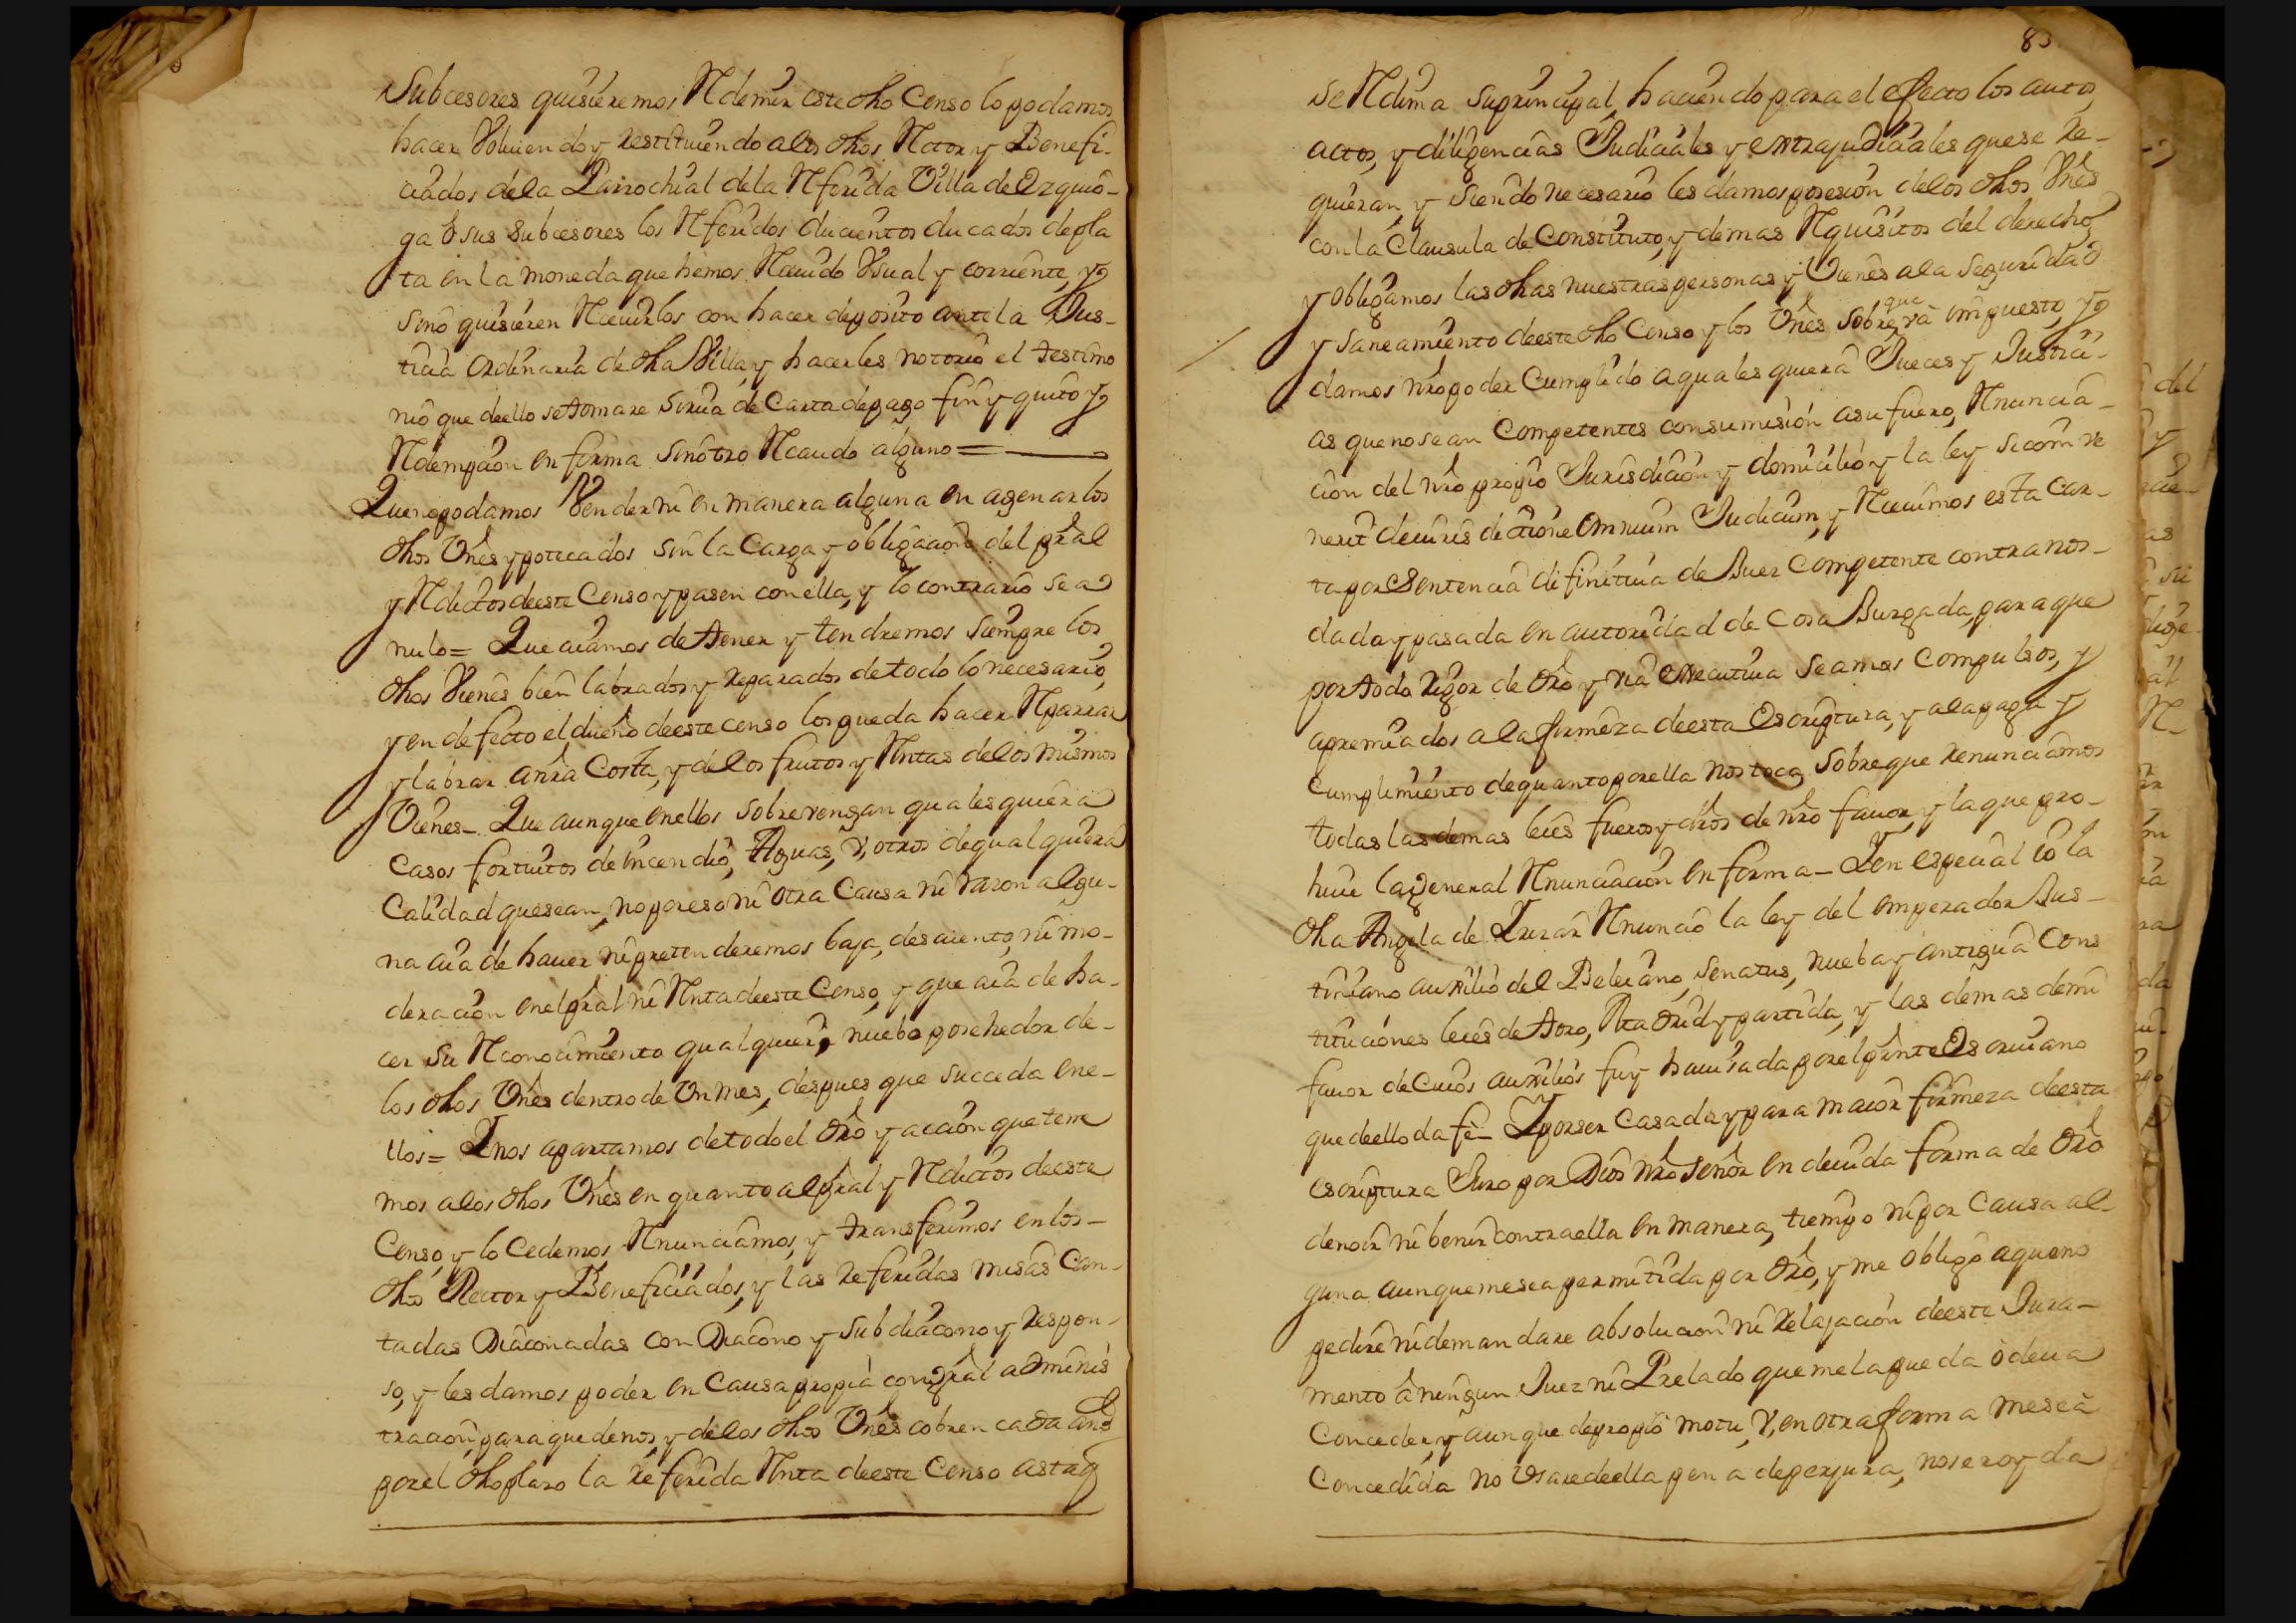 Subcesores quisieremos Redemir este dho Censo lo podamos
hacer Volviendo y restituiendo a los dhos Rector y Benefi-
ciados de la Parrochial de la Referida Villa de Ezquio-
ga ò sus subcesores los Referidos ducientos ducados de pla
ta en la moneda que hemos Recivido Usual y corriente, y
sino quisieren Recivirlos con hacer deposito ante la Jus-
ticia Ordinaria de dha Villa, y hacerles notorio el testimo
nio que de ello se tomare sirva de Carta de pago fin y quito y
Redempcion en forma sin otro Recaudo alguno =
Que no podamos Vender ni en manera alguna en agenar los
dhos Vnes ypotecados sin la Carga y obligacion del pral
y Reditos de este Censo y pasen con ella, y lo contrario sea
nulo = Que aiamos de tener y tendremos siempre los
dhos Vienes bien labrados y reparados de todo lo necesario,
y en defecto el dueño de este censo los pueda hacer Reparar
y labrar a nra Costa, y de los frutos y Rentas de los mismos
Vienes - Que aunque en ellos sobrevengan qualesquiera
Casos fortuitos de incendio, Aguas, V, otros de qualquiera
Calidad que sean, no por eso ni otra Causa ni razon algu-
na aia de haver ni pretenderemos baja, desciento, ni mo-
deracion en el pral ni Renta de este Censo, y que aia de ha-
cer su Reconocimiento qualquiera nuebo posehedor de-
los dhos Vnes dentro de Un mes, despues que succeda en e-
llos = Y nos apartamos de todo el dro y accion que tene
mos a los dhos Vnes en quanto al pral y Reditos de este
Censo, y lo Cedemos Renunciamos, y transferimos en los -
dhos Rector y Beneficiados, y las referidas misas Can-
tadas Diaconadas con Diacono y subdiacono y respon-
so, y les damos poder en Causa propia con gral adminis
tracion, para que de nos, y de los dhos Vnes cobren cada año
por el dho plazo la referida Renta de este Censo asta q
85
se Redima su principal, haciendo para el efecto los autos,
actos, y diligencias Judiciales y extrajudiciales que se re-
quieran, y siendo necesario les damos posesion de los dhos Vnes
con la Clausula de Constituto, y demas Requisitos del derecho,
y obligamos las dhas nuestras personas y Vienes a la seguridad
y saneamiento de este dho Censo y los Vnes sobre que va impuesto, y
damos nro poder Cumplido a qualesquiera Jueces y Justici-
as que nos sean Competentes con sumision a su fuero, Renuncia-
cion del nro propio Jurisdicion y domicilio y la ley si com ve
nerit de iuris dictione Omnium Judicum, y Recivimos esta Car-
ta por Sentencia difinitiva de Juez Competente contra nos-
dada y pasada en autoridad de Cosa Juzgada, para que
por todo rigor de dro y via executiva seamos Compulsos, y
apremiados a la firmeza de esta Escriptura, y a la paga y
Cumplimiento de quanto por ella nos toca, sobre que renunciamos
todas las demas leies fueros y dros de nro favor, y la que pro-
hive la general Renunciacion en forma - Y en especial io la
dha Angela de Yrizar Renuncio la ley del emperador Jus-
tiniano auxilio del Beleiano, senatus, nueba y antigua Cons
tituciones leies de toro, Madrid y partida, y las demas de mi
favor de Cuios auxilios fuy havisada por el pnte Escrivano
que de ello da fè - Y por ser Casada y para maior firmeza de esta
escriptura Juro por Dios nro señor en devida forma de dro
de no ir ni benir contra ella en manera, tiempo ni por Causa al-
guna aunque me sea permitida por dro, y me obligo a que no
pedire ni demandare absolucion ni relajacion de este Jura-
mento à ningun Juez ni Prelado que me la pueda ò deva
Conceder, y aunque de propio motu, V, en otra forma me seà
Concedida no Usare de ella pena de perjura, no se royda